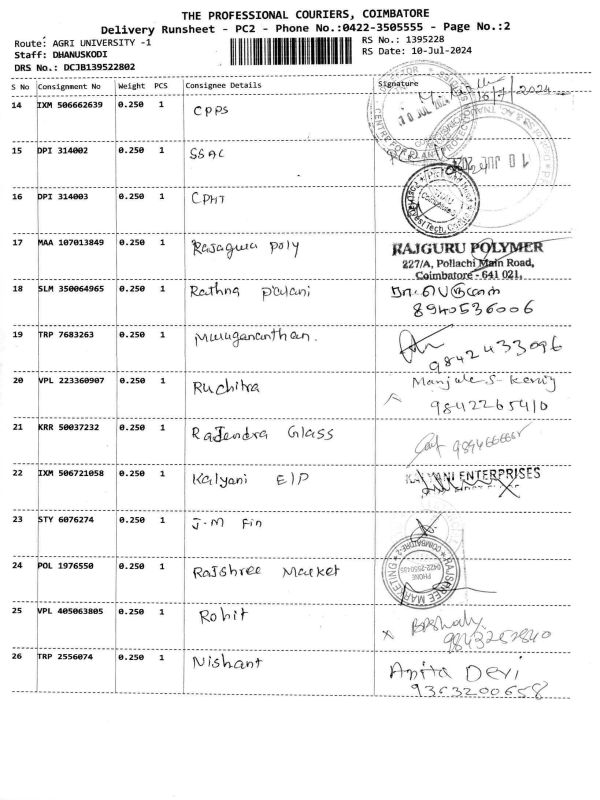 THE PROFESSIONAL COURIERS, COIMBATORE
Delivery Runsheet - PC2 - Phone No.:0422-3505555 - Page No.:2
Route: AGRI UNIVERSITY -1
RS No.: 1395228
Staff: DHANUSKODI
RS Date: 10-Jul-2024
DRS No.: DCJB139522802
S No Consignment No Weight PCS Consignee Details Signature
14 IXM 506662639 0.250 1 CPPS
15 DPI 314002 0.250 1 SSAC
10 JUL
16 DPI 314003 0.250 1 CPHT
17 MAA 107013849 0.250 1 Rajaguru poly RAJGURU POLYMER
227/A, Pollachi Main Road,
Coimbatore - 641 021.
18 SLM 350064965 0.250 1 Rathna palani
8940536006
19 TRP 7683263 0.250 1 Muruganantham.
9842433096
20 VPL 223360907 0.250 1 Ruchitra Manjula S.
9842265410
21 KRR 50037232 0.250 1 Rajendra Glass
22 IXM 506721058 0.250 1 Kalyani E/P KALYANI ENTERPRISES
23 STY 6076274 0.250 1 J.M Fin
24 POL 1976550 0.250 1 Rajshree Market RAJSHREE MARKETING
COIMBATORE-2
PHONE
0422-2550435
25 VPL 405063805 0.250 1 Rohit
26 TRP 2556074 0.250 1 Nishant Anita Devi
9363200658